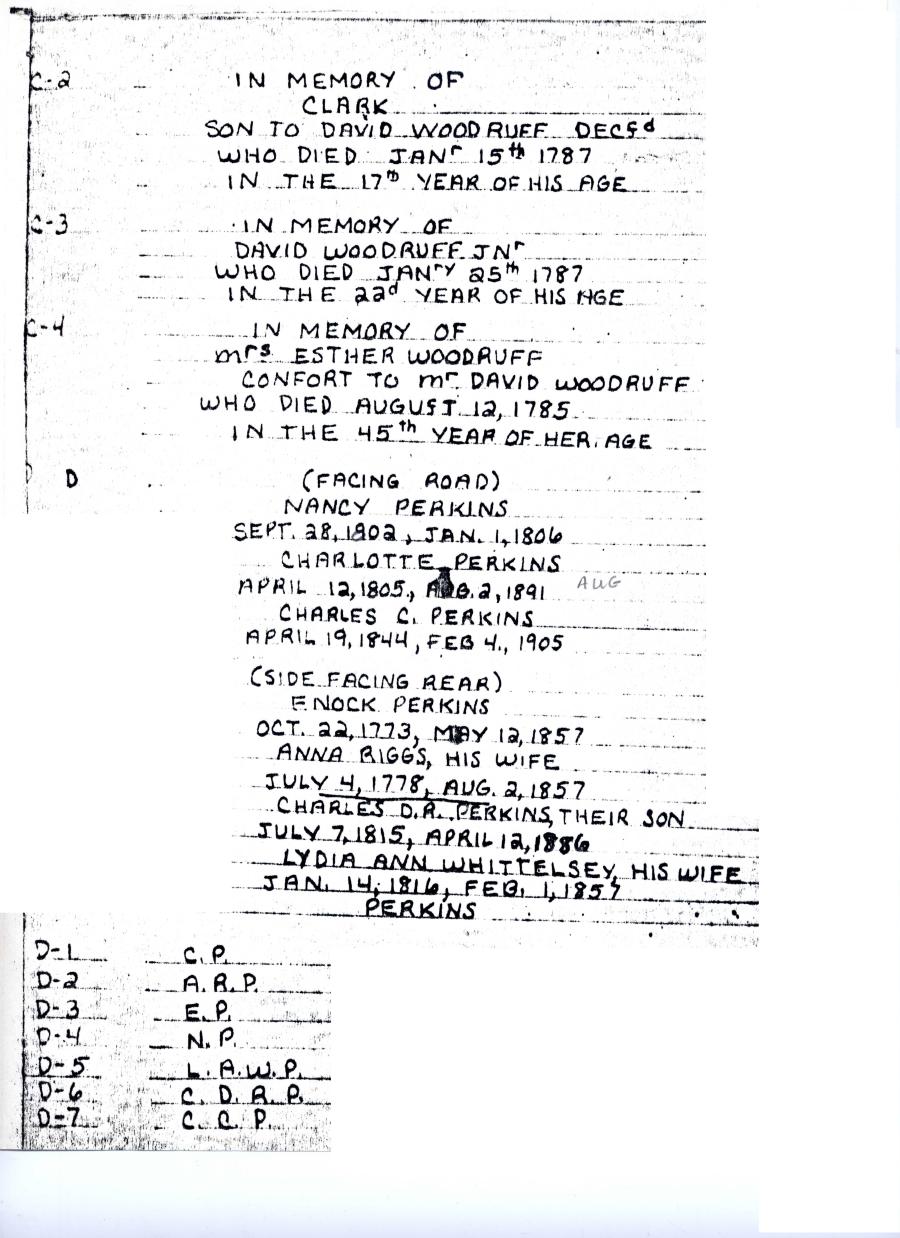 C-2 IN MEMORY OF
CLARK
SON TO DAVID WOODRUFF DECSd
WHO DIED JANr 15th 1787
IN THE 17th YEAR OF HIS AGE
C-3 IN MEMORY OF
DAVID WOODRUFF JNr
WHO DIED JANry 25th 1787
IN THE 22d YEAR OF HIS AGE
C-4 IN MEMORY OF
mrs ESTHER WOODRUFF
CONFORT TO mr. DAVID WOODRUFF
WHO DIED AUGUST 12, 1785
IN THE 45th YEAR OF HER AGE
D (FACING ROAD)
NANCY PERKINS
SEPT. 28, 1802, JAN. 1, 1806
CHARLOTTE PERKINS
APRIL 12, 1805., AUG. 2, 1891 AUG
CHARLES C. PERKINS
APRIL 19, 1844, FEB 4., 1905
(SIDE FACING REAR)
ENOCK PERKINS
OCT. 22, 1773, MAY 12, 1857
ANNA RIGGS, HIS WIFE
JULY 4, 1778, AUG. 2, 1857
CHARLES D.R. PERKINS, THEIR SON
JULY 7, 1815, APRIL 12, 1886
LYDIA ANN WHITTELSEY, HIS WIFE
JAN. 14, 1816, FEB. 1, 1857
PERKINS
D-1 C. P.
D-2 A. R. P.
D-3 E. P.
D-4 N. P.
D-5 L. A. W. P.
D-6 C. D. R. P.
D-7 C. C. P.